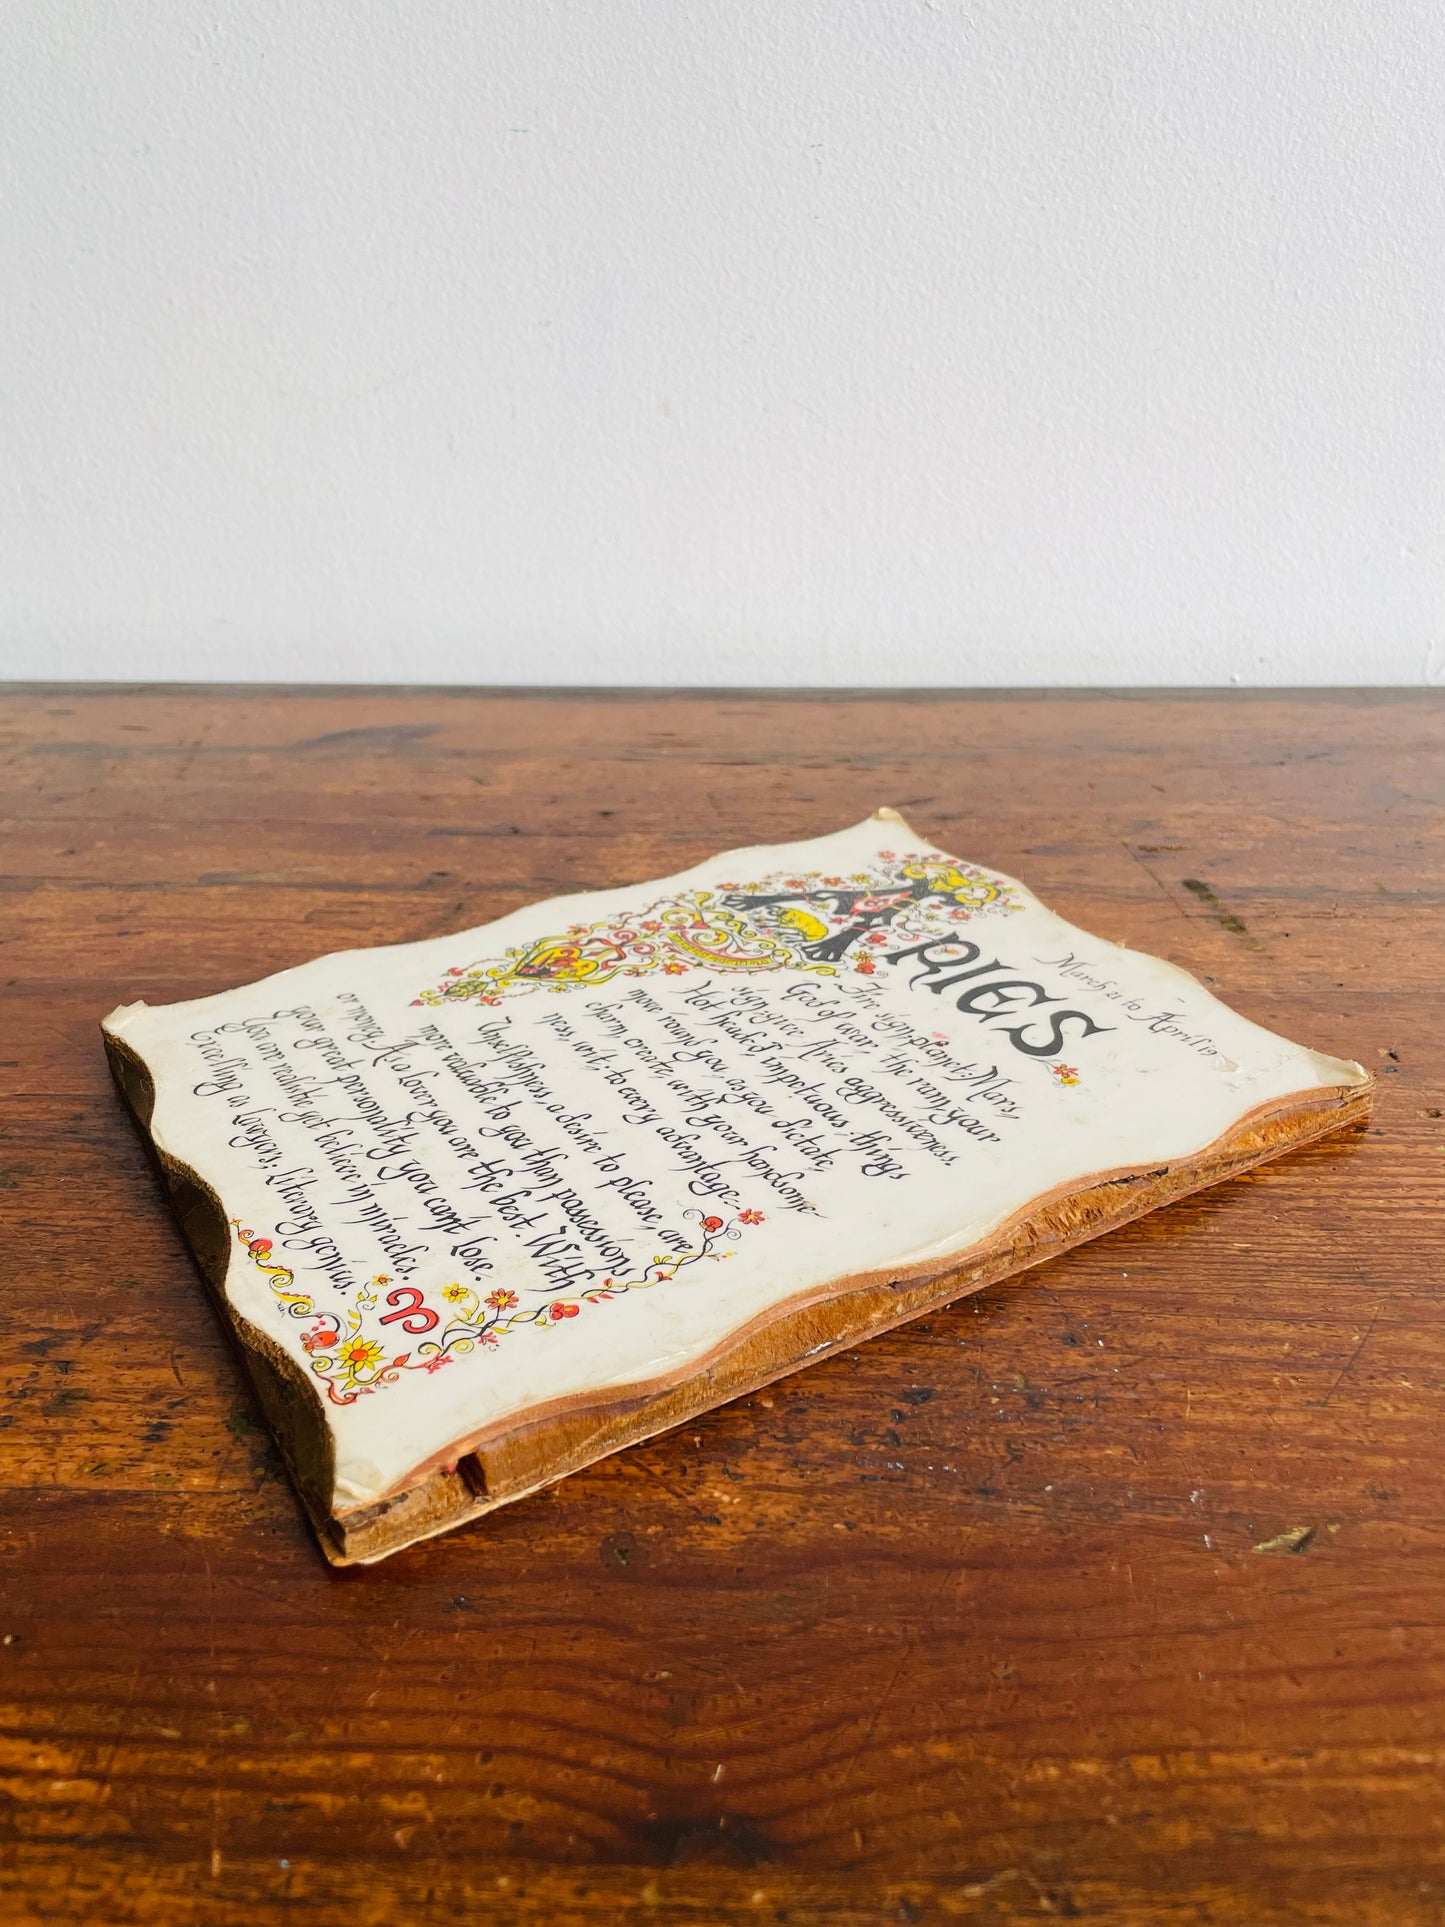 March 21 to April 19
ARIES
Fire sign-planet: Mars,
God of war; the ram, your
sign, give Aries aggressiveness.
Hot head & impetuous, things
move round you, as you dictate,
charm, create, with your handsome-
ness, wit, to every advantage-
Unselfishness, a desire to please, are
more valuable to you than possessions
or money. As a Lover, you are the best. With
your great personality you can't lose.
You are realistic yet believe in miracles.
Excelling as Lawyers; Literary genius.